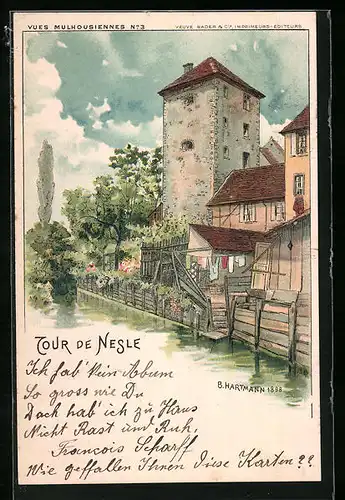 VUES MULHOUSIENNES Nº 3
VEUVE BADER & Cie, IMPRIMEURS-ÉDITEURS
TOUR DE NESLE
B. HARTMANN 1898
Ich hab' kein Album
So gross wie Du
Doch hab' ich zu Haus
Nicht Rast und Ruh,
François Scharff
Wie gefallen Ihnen diese Karten??